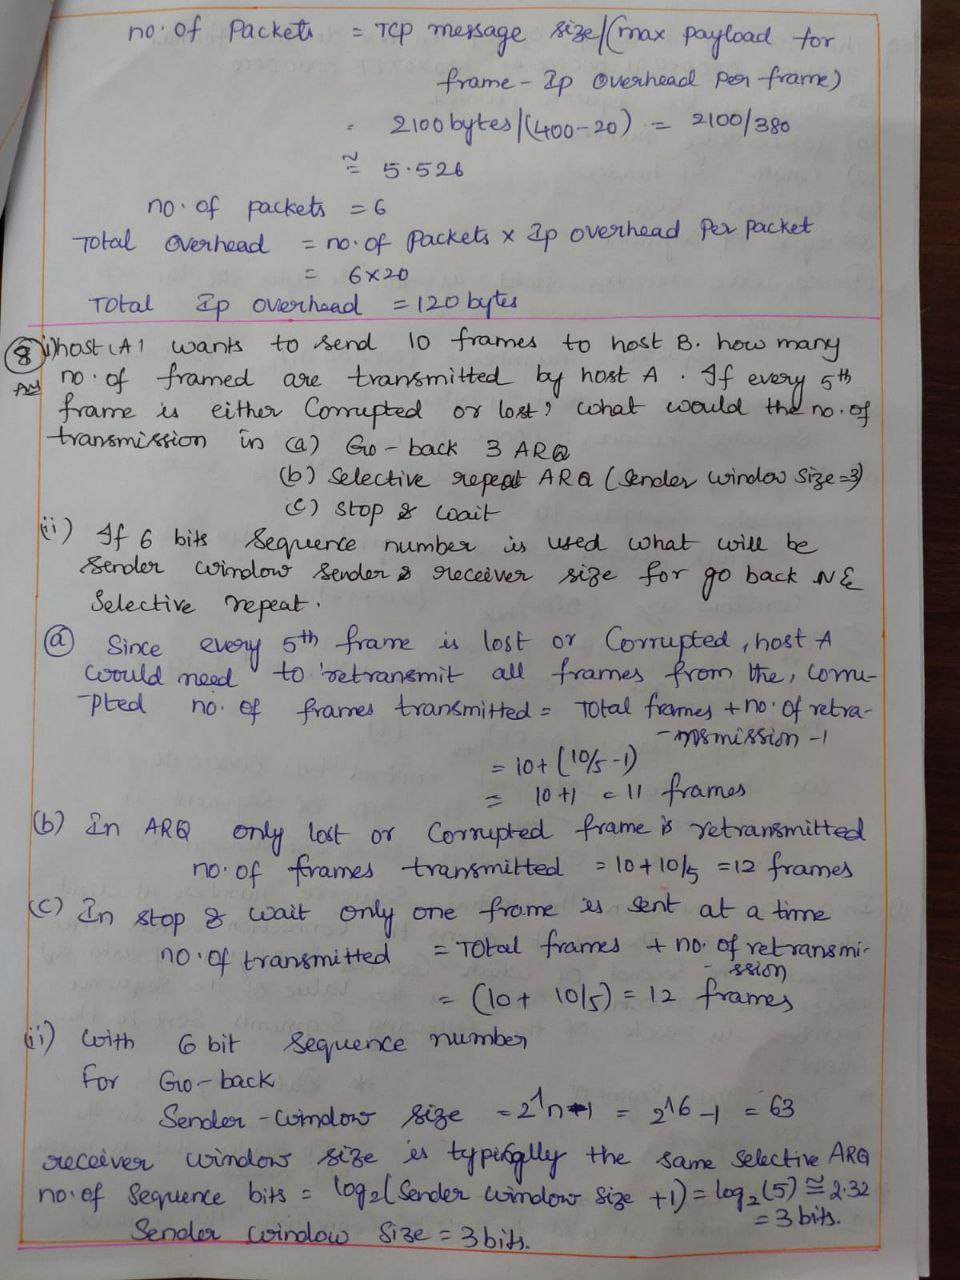 no. of Packets = TCP message size/(max payload for
frame - Ip overhead per frame)
= 2100 bytes/(400-20) = 2100/380
≅ 5.526
no. of packets = 6
Total overhead = no. of Packets x Ip overhead Per packet
= 6x20
Total Ip overhead = 120 bytes
8 i) host 'A' wants to send 10 frames to host B. how many
Ans no. of framed are transmitted by host A. If every 5th
frame is either Corrupted or lost? what would the no. of
transmission in (a) Go-back 3 ARQ
(b) Selective repeat ARQ (Sender window size=3)
(c) stop & wait
(ii) If 6 bits Sequence number is used what will be
Sender window sender & receiver size for go back N &
Selective repeat.
(a) Since every 5th frame is lost or Corrupted, host A
would need to retransmit all frames from the, corru-
-pted no. of frames transmitted = Total frames + no. of retra-
-nsmission -1
= 10+(10/5-1)
= 10+1 = 11 frames
(b) In ARQ only lost or Corrupted frame is retransmitted
no. of frames transmitted = 10+10/5 = 12 frames
(c) In stop & wait only one frame is sent at a time
no. of transmitted = Total frames + no. of retransmi-
-ssion
= (10+ 10/5) = 12 frames
ii) with 6 bit Sequence number
For Go-back
Sender-window size = 2^n-1 = 2^6-1 = 63
receiver window size is typically the same selective ARQ
no. of sequence bits = log2(Sender window size +1) = log2(5) ≅ 2.32
= 3 bits.
Sender window size = 3 bits.